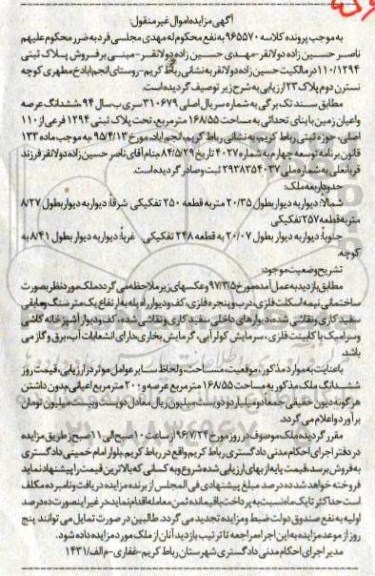 آگهی مزایده اموال غیر منقول
به موجب پرونده کلاسه ۹۶۵۵۷۰ به نفع محکوم له مهدی مجلسی فرد به ضرر محکوم علیهم
ناصر حسین زاده دولانقر-مهدی حسین زاده دولانقر- مبنی بر فروش پلاک ثبتی
۱۱۰/۱۲۹۴ در مالکیت حسین زاده دولانقر به نشانی رباط کریم-روستای انجم اباد خ مطهری کوچه
نسترن دوم پلاک ۲۳ ارزیابی به شرح زیر توصیف گردیده است.
مطابق سند تک برگی به شماره سریال اصلی ۳۱۰۶۷۹ سری ب سال ۹۴ ،ششدانگ عرصه
واعیان زمین با بنای تحداثی به مساحت ۱۶۸/۵۵ متر مربع، تحت پلاک ثبتی ۱۲۹۴ فرعی از ۱۱۰
اصلی، حوزه ثبتی رباط کریم، به نشانی رباط کریم، انجم اباد، مورخ ۹۵/۴/۱۳ به موجب ماده ۱۳۳
قانون برنامه توسعه چهارم به شماره ۴۰۲۷ تاریخ ۸۴/۵/۲۹ بنام آقای ناصر حسین زاده دولانقر فرزند
قربانعلی به شماره ملی ۲۹۳۸۳۵۴۰۳۷ ثبت و صادر گردیده است.
حدود اربعه ملک:
شمالاً: دیوار به دیوار بطول ۲۰/۳۵ متر به قطعه ۲۵۰ تفکیکی شرقاً: دیوار به دیوار بطول ۸/۲۷
متر به قطعه ۲۵۷ تفکیکی
جنوباً: دیوار به دیوار بطول ۲۰/۰۷ به قطعه ۲۴۸ تفکیکی. غرباً: دیوار به دیوار بطول ۸/۴۱ به
کوچه.
تشریح وضعیت موجود:
مطابق بازدید به عمل آمده مورخ ۹۷/۳/۵ و عکسهای زیر ملاحظه می گردد ملک مورد نظر بصورت
ساختمانی نیمه اسکلت فلزی، درب و پنجره فلزی، کف و دیوار راه پله به ارتفاع یک متر سنگ و مابقی
سفید کاری و نقاشی شده، دیوارهای داخلی سفید کاری و نقاشی شده، کف و دیوار آشپزخانه کاشی
و سرامیک با کابینت فلزی، سرمایش کولر آبی، گرمایش بخاری، دارای انشعابات آب، برق و گاز می
باشد.
با عنایت به موارد مذکور، موقعیت، مساحت، ولحاظ سایر عوامل موثر در ارزیابی، قیمت روز
ششدانگ ملک مذکور به مساحت ۱۶۸/۵۵ متر مربع عرصه و ۲۰۰ متر مربع اعیانی، بدون داشتن
هر گونه دیون حقیقی جمعا دو میلیارد و دویست میلیون ریال معادل دویست و بیست میلیون تومان
برآورد و اعلام می گردد.
مقرر گردیده ملک موصوف در روز مورخ ۹۶/۷/۲۴ از ساعت ۱۰ صبح الی ۱۱ صبح از طریق مزایده
در دفتر اجرای احکام مدنی دادگستری رباط کریم واقع در رباط کریم بلوار امام خمینی دادگستری
به فروش برسد، قیمت پایه از بهای ارزیابی شده شروع و به کسانی که بالاترین قیمت را پیشنهاد نماید
فروخته خواهد شد ده درصد مبلغ پیشنهادی فی المجلس از برنده مزایده دریافت و نامبرده مکلف
است حداکثر تا یک ماه نسبت به پرداخت باقیمانده ثمن معامله اقدام نماید، در غیر اینصورت ده درصد
اولیه به نفع صندوق دولت ضبط و مزایده تجدید می گردد. طالبین در صورت تمایل می توانند پنج
روز از موعد مزایده به این اجرا مراجعه تا ترتیب بازدید آنان از ملک مورد مزایده داده شود.
مدیر اجرای احکام مدنی دادگستری شهرستان رباط کریم-غفاری-م الف/۱۴۳۱